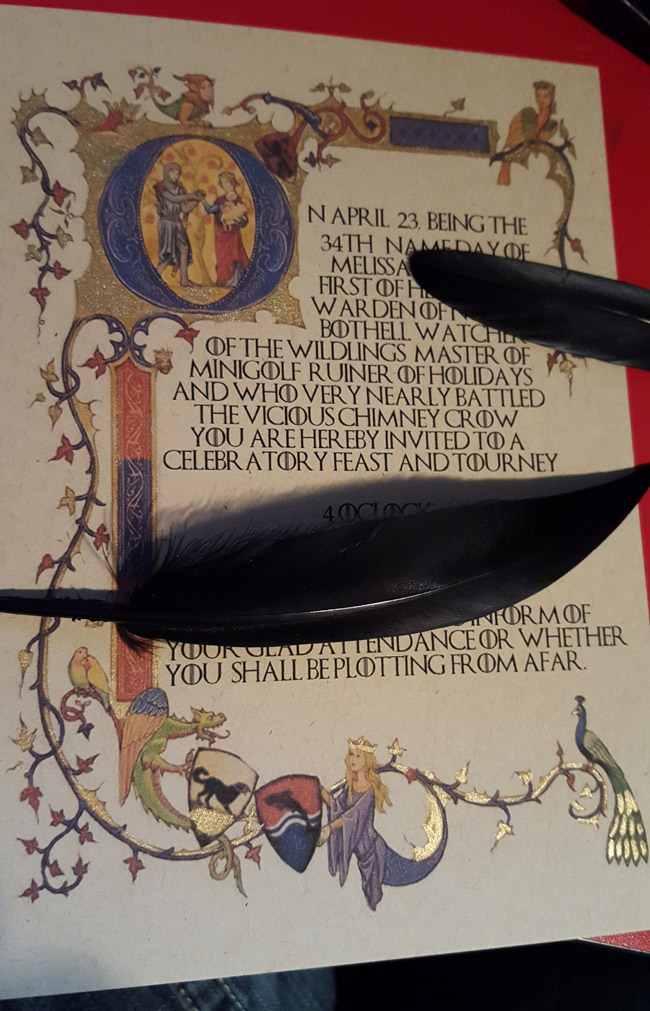 ON APRIL 23. BEING THE
34TH NAMEDAY OF
MELISSA
FIRST OF
WARDEN OF
BOTHELL WATCHER
OF THE WILDLINGS MASTER OF
MINIGOLF RUINER OF HOLIDAYS
AND WHO VERY NEARLY BATTLED
THE VICIOUS CHIMNEY CROW
YOU ARE HEREBY INVITED TO A
CELEBRATORY FEAST AND TOURNEY
4 OCLOCK
INFORM OF
YOUR GLAD ATTENDANCE OR WHETHER
YOU SHALL BE PLOTTING FROM AFAR.